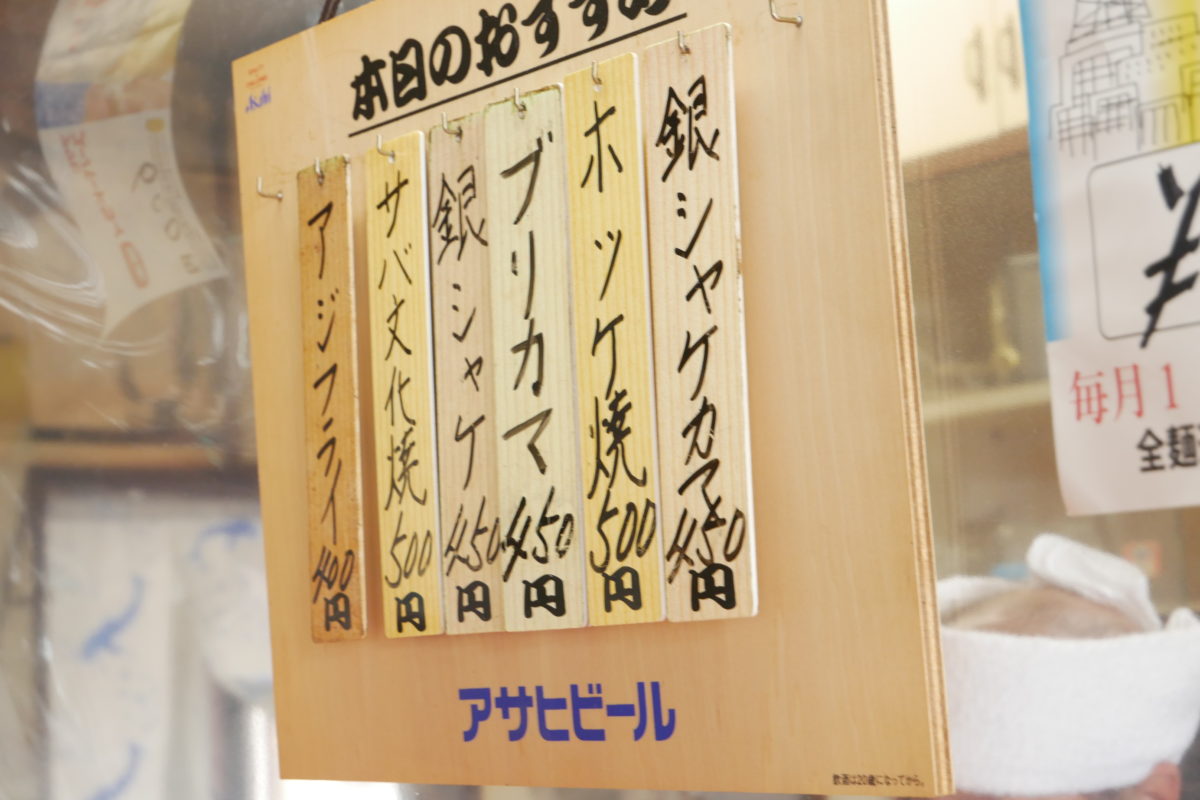 本日のおすすめ
銀シャケカマ450円
ホッケ焼500円
ブリカマ450円
銀シャケ450円
サバ文化焼500円
アジフライ400円
アサヒビール
飲酒は20歳になってから。
Asahi
¥
毎月1
全麺